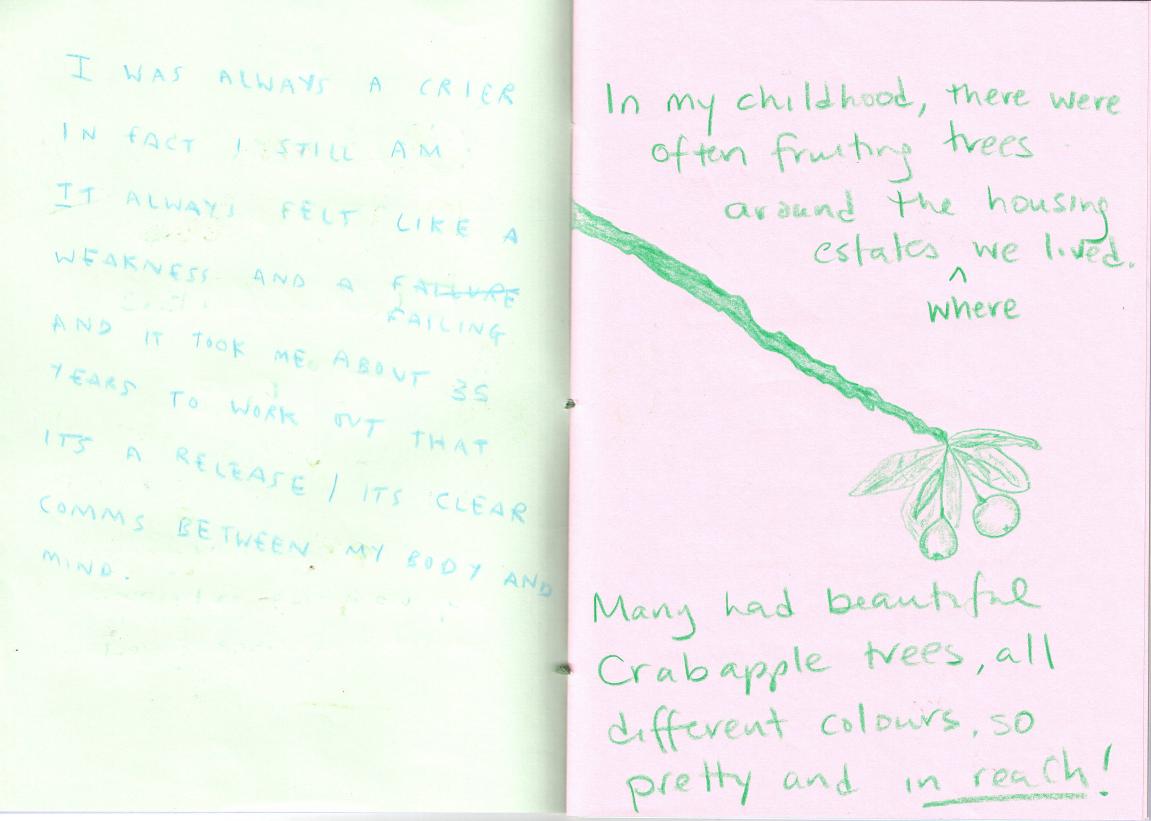 I WAS ALWAYS A CRIER
IN FACT I STILL AM
IT ALWAYS FELT LIKE A
WEAKNESS AND A FAILURE
FAILING
AND IT TOOK ME ABOUT 35
YEARS TO WORK OUT THAT
ITS A RELEASE / ITS CLEAR
COMMS BETWEEN MY BODY AND
MIND.
In my childhood, there were
often fruiting trees
around the housing
estates ^ we lived.
where
Many had beautiful
Crabapple trees, all
different colours, so
pretty and in reach!